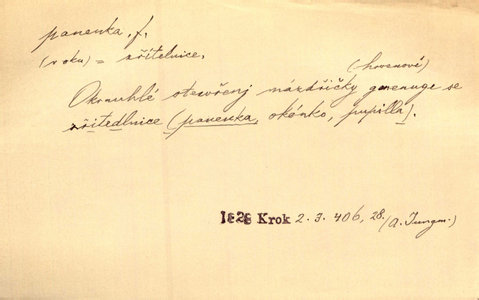 panenka, f.
(v oku) = zřítelnice.
(hrozenové)
Okrouhlé otevřenj mázdřičky gmenuge se
zřitedlnice (panenka, okénko, pupilla).
1828 Krok 2. 3. 406, 28. (A. Jungm.)